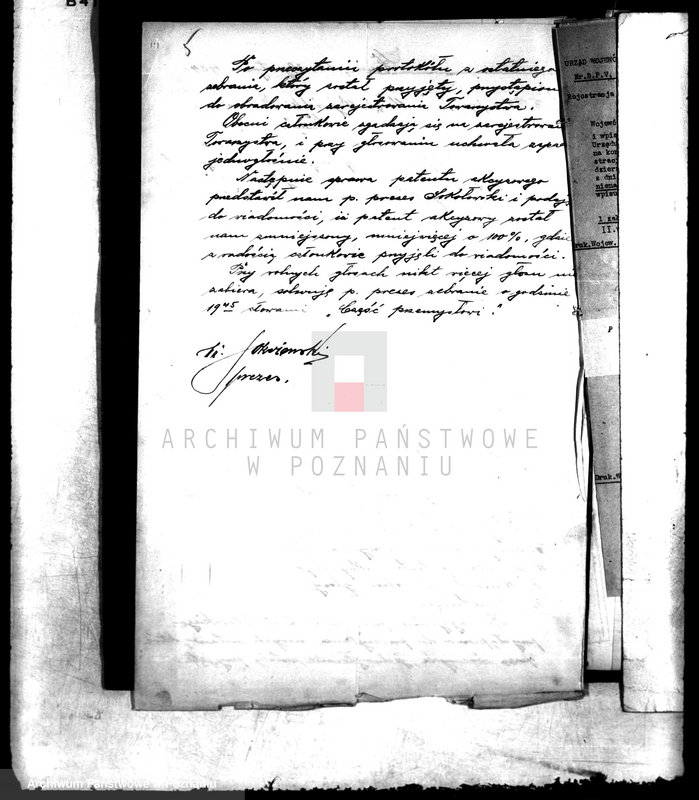 B 4
5
Po przeczytaniu protokółu z ostatniego
zebrania, który został przyjęty, przystąpiono
do obradowania zarejestrowania Towarzystwa.
Obecni członkowie zgadzają się na zarejestrowanie
Towarzystwa, i przy głosowaniu uchwała zapadła
jednogłośnie.
Następnie sprawa patentu akcyzowego
przedstawił nam p. prezes Sokołowski i podaje
do wiadomości, iż patent akcyzowy został
nam zmniejszony, mniejwięcej o 100%, gdzie
z radością członkowie przyjęli do wiadomości.
Przy wolnych głosach nikt więcej głosu nie
zabiera, solwuje p. prezes zebranie o godzinie
19 45 słowami "Cześć przemysłowi".
St. Sokołowski
prezes.
ARCHIWUM PAŃSTWOWE
W POZNANIU
URZĄD WOJEWÓ
Nr.B.P.V.
Rejestracja
Wojewó
i wpis
Urzędu
na kon
strac
dzier
z dni
niena
wpisu
1 zał
II.
Druk.Wojew.
P
Druk.W
Archiwum Państwowe w Poznaniu